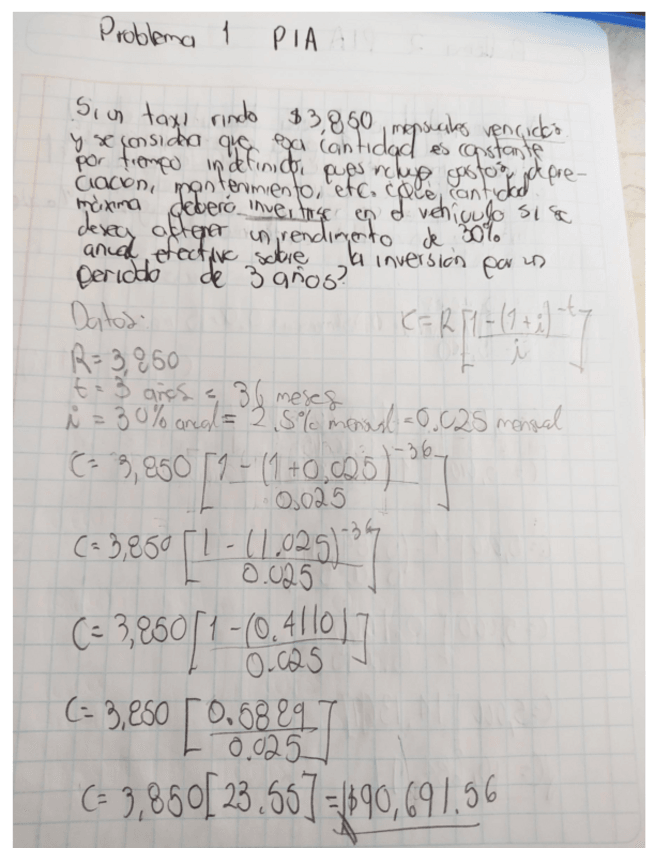 Problema 1 PIA
Si un taxi rinde $3,850 mensuales vencidos
y se considera que esa cantidad es constante
por tiempo indefinido, pues incluye gastos, depre-
ciacion, mantenimiento, etc. cantidad
máxima deberá invertirse en el vehículo si se
desea obtener un rendimiento de 30%
anual efectivo sobre la inversión por un
periodo de 3 años?
Datos:
C = R [1-(1+i)^-t / i]
R = 3,850
t = 3 años = 36 meses
i = 30% anual = 2.5% mensual = 0.025 mensual
C = 3,850 [1-(1+0.025)^-36 / 0.025]
C = 3,850 [1-(1.025)^-36 / 0.025]
C = 3,850 [1-(0.4110) / 0.025]
C = 3,850 [0.5889 / 0.025]
C = 3,850 [23.55] = $90,691.56